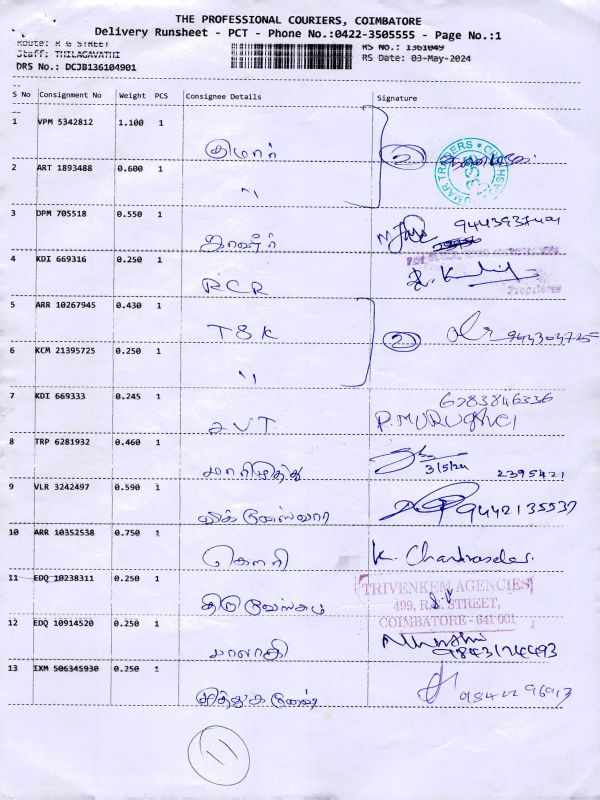 THE PROFESSIONAL COURIERS, COIMBATORE
Delivery Runsheet - PCT - Phone No.:0422-3505555 - Page No.:1
Route: R G STREET
RS No.: 1361049
Staff: THILAGAVATHI
RS Date: 03-May-2024
DRS No.: DCJB136104901
S No Consignment No Weight PCS Consignee Details Signature
1 VPM 5342812 1.100 1
குமார்
2
2 ART 1893488 0.600 1
"
3 DPM 705518 0.550 1
4 KDI 669316 0.250 1
RCR
5 ARR 10267945 0.430 1
T8K
2
6 KCM 21395725 0.250 1
"
7 KDI 669333 0.245 1
6783846336
SVT
P. MURUGAVEL
8 TRP 6281932 0.460 1
மாரிமுத்து
3/5/24
2395421
9 VLR 3242497 0.590 1
9442135537
10 ARR 10352538 0.750 1
கௌரி
11 EDQ 10238311 0.250 1
TRIVENKEM AGENCIES
499, R.G. STREET,
COIMBATORE - 641 001
12 EDQ 10914520 0.250 1
பாலாஜி
9843124493
13 IXM 506345930 0.250 1
11